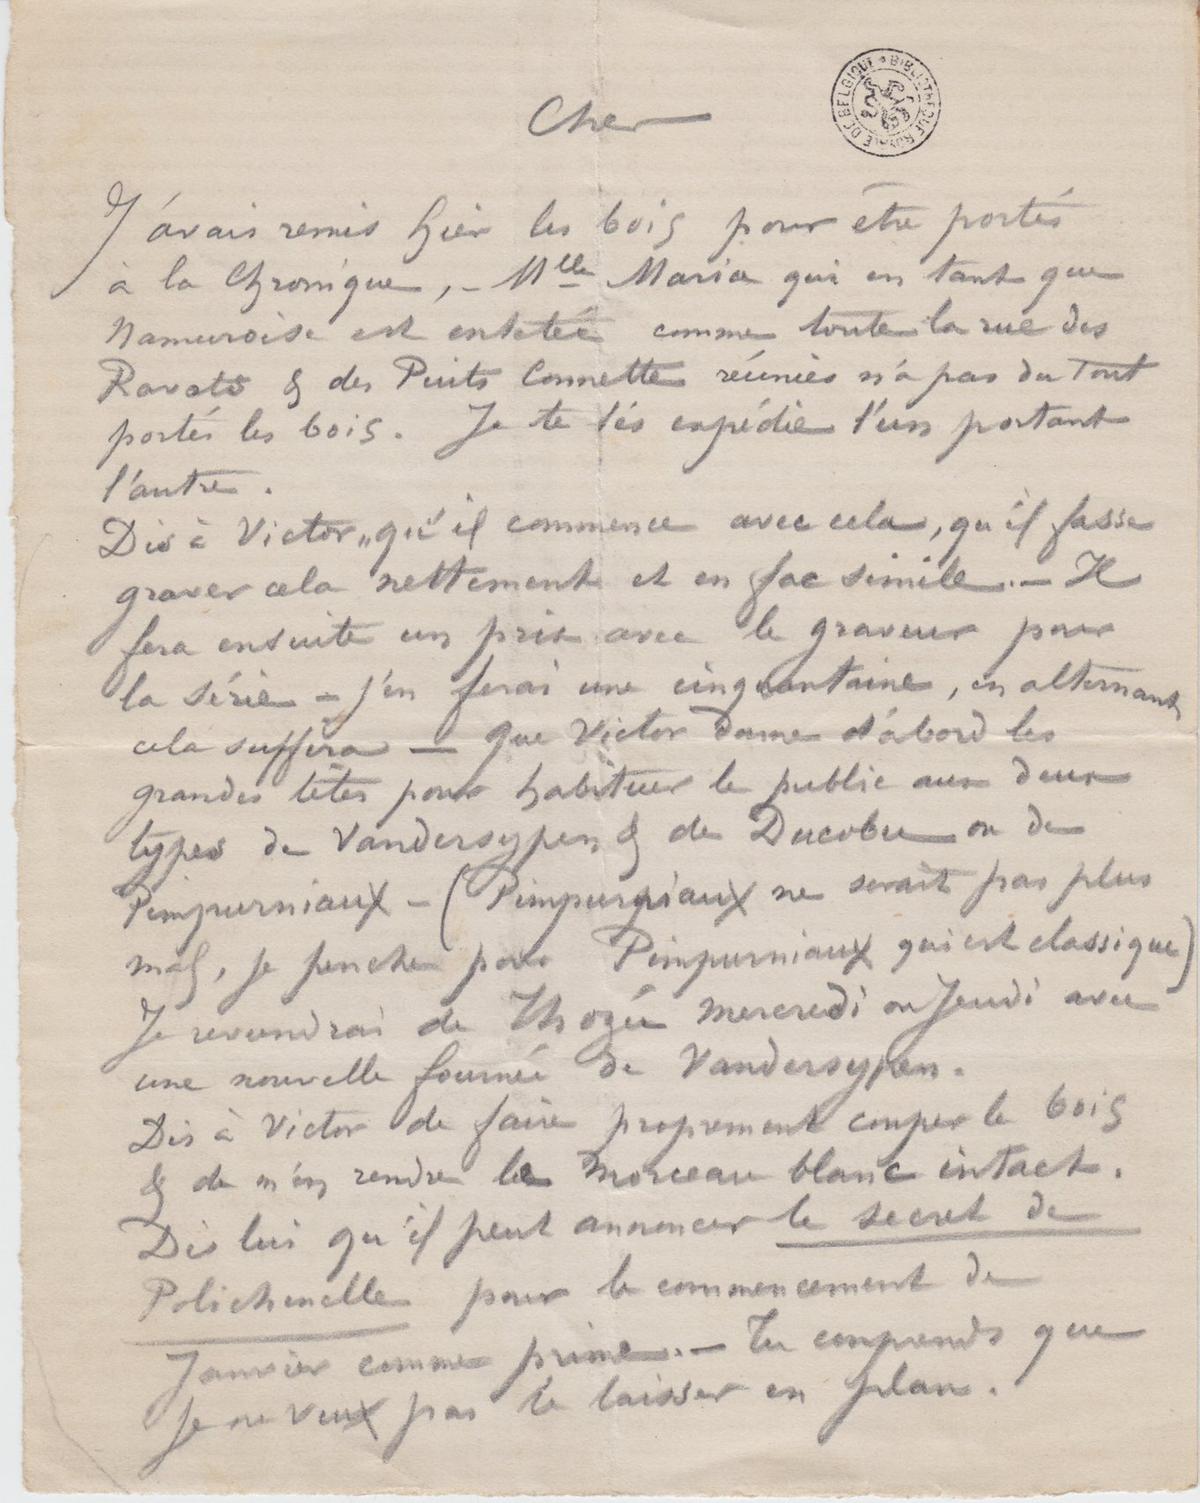 Cher
BIBLIOTHEQUE ROYALE DE BELGIQUE
J'avais remis hier les bois pour être portés
à la Chronique, – Mlle Maria qui en tant que
Namuroise est entetée comme toute la rue des
Ravets & des Puits Connette réunies n'a pas du tout
portés les bois. Je te les expédie l'un portant
l'autre.
Dis à Victor, qu'il commence avec cela, qu'il fasse
graver cela nettement et en fac simile. – Il
fera ensuite un prix avec le graveur pour
la série – j'en ferai une cinquantaine, en alternant
cela suffira — que Victor donne d'abord les
grandes têtes pour habituer le public aux deux
types de Vandersypen & de Ducobu ou de
Pimpurniaux – (Pimpurniaux ne serait pas plus
mal, je penche pour Pimpurniaux qui est classique)
Je reviendrai de Thozée mercredi ou Jeudi avec
une nouvelle fournée de Vandersypen.
Dis à Victor de faire proprement couper le bois
& de m'en rendre le morceau blanc intact.
Dis lui qu'il peut annoncer le secret de
Polichenelle pour le commencement de
Janvier comme prime. – Tu comprends que
je ne veux pas le laisser en plan.